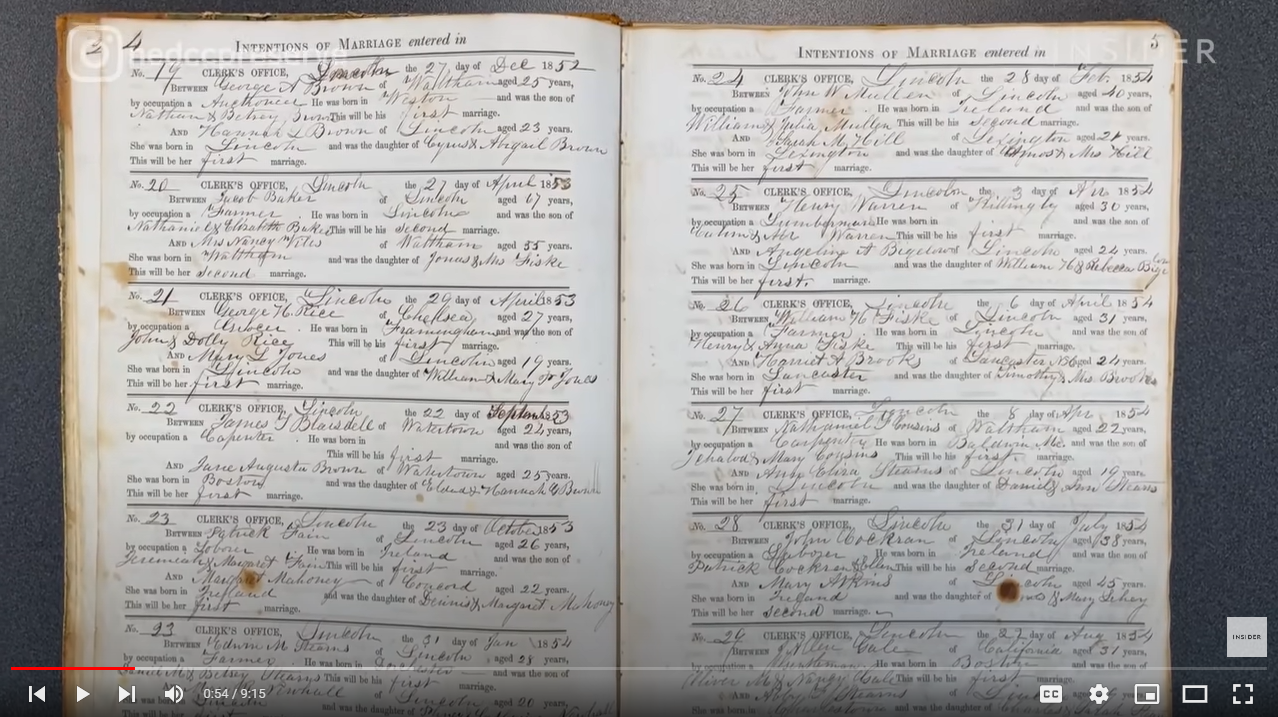 nedccpreserve
INSIDER
2 4
INTENTIONS OF MARRIAGE entered in
No. 19 CLERK'S OFFICE, Lincoln the 27 day of Dec 1852
BETWEEN George A Brown of Waltham aged 25 years,
by occupation a He was born in Weston and was the son of
Nathan & Betsey Brown This will be his first marriage.
AND Hannah L Brown of Lincoln aged 23 years.
She was born in Lincoln and was the daughter of Cyrus & Abigail Brown
This will be her first marriage.
No. 20 CLERK'S OFFICE, Lincoln the 27 day of April 1853
BETWEEN Jacob Baker of Lincoln aged 67 years,
by occupation a Farmer He was born in Lincoln and was the son of
Nathaniel & Elizabeth Baker This will be his second marriage.
AND Mrs Nancy of Waltham aged 55 years.
She was born in Waltham and was the daughter of Jonas & Mrs Fiske
This will be her second marriage.
No. 21 CLERK'S OFFICE, Lincoln the 29 day of April 1853
BETWEEN George H Rice of Chelsea aged 27 years,
by occupation a Grocer. He was born in Framingham and was the son of
John & Dolly Rice This will be his first marriage.
AND Mary L Jones of Lincoln aged 19 years.
She was born in Lincoln and was the daughter of William & Mary Jones
This will be her first marriage.
No. 22 CLERK'S OFFICE, Lincoln the 22 day of September 1853
BETWEEN James T Blaisdell of Watertown aged 24 years,
by occupation a Capenter. He was born in and was the son of
This will be his first marriage.
AND Jane Augusta Brown of Watertown aged 25 years.
She was born in Boston and was the daughter of & Hannah G Brown
This will be her first marriage.
No. 23 CLERK'S OFFICE, Lincoln the 23 day of October 1853
BETWEEN Patrick Fain of Lincoln aged 26 years,
by occupation a Laborer He was born in Ireland and was the son of
Jeremiah & Margaret Fain This will be his first marriage.
AND Margaret Mahoney of Concord aged 22 years.
She was born in Ireland and was the daughter of Dennis & Margaret Mahoney
This will be her first marriage.
No. 23 CLERK'S OFFICE, Lincoln the 31 day of Jan 1854
BETWEEN Edwin M Stearns of Lincoln aged 28 years,
by occupation a Farmer He was born in and was the son of
& Betsey Stearns This will be his first marriage.
of Lincoln aged 20 years.
5
INTENTIONS OF MARRIAGE entered in
No. 24 CLERK'S OFFICE, Lincoln the 28 day of Feb 1854
BETWEEN John W Mullen of Lincoln aged 40 years,
by occupation a Farmer. He was born in Ireland and was the son of
William & Julia Mullen This will be his second marriage.
AND Sarah M Hill of Lexington aged years.
She was born in Lexington and was the daughter of & Mrs Hill
This will be her first marriage.
No. 25 CLERK'S OFFICE, Lincoln the 3 day of Apr 1854
BETWEEN Henry Warren of Killingly aged 30 years,
by occupation a Lumberman He was born in and was the son of
Warren This will be his first marriage.
AND Angeline A Bigelow of Lincoln aged 24 years.
She was born in Lincoln and was the daughter of William & Rebecca Bigelow
This will be her first. marriage.
No. 26 CLERK'S OFFICE, Lincoln the 6 day of April 1854
BETWEEN William H Fiske of Lincoln aged 31 years,
by occupation a Farmer. He was born in Lincoln and was the son of
Henry & Anna Fiske This will be his first marriage.
AND Harriet A Brooks of Lancaster aged 24 years.
She was born in Lancaster and was the daughter of Timothy & Mrs Brooks
This will be her first marriage.
No. 27 CLERK'S OFFICE, Lincoln the 8 day of Apr 1854
BETWEEN Nathaniel Cousins of Waltham aged 22 years,
by occupation a Carpenter He was born in Baldwin Me. and was the son of
& Mary Cousins This will be his first marriage.
AND Stearns of Lincoln aged 19 years.
She was born in Lincoln and was the daughter of Daniel & Stearns
This will be her first marriage.
No. 28 CLERK'S OFFICE, Lincoln the 31 day of July 1854
BETWEEN John Cockran of Lincoln aged 38 years,
by occupation a Laborer He was born in Ireland and was the son of
Patrick Cockran & Ellen This will be his second marriage.
AND Mary of Lincoln aged 45 years.
She was born in Ireland and was the daughter of & Mary
This will be her second marriage.
No. 29 CLERK'S OFFICE, Lincoln the 27 day of Aug 1854
BETWEEN of California aged 31 years,
by occupation a Gentleman He was born in Boston and was the son of
Oliver M & Nancy This will be his first marriage.
AND Stearns of Lincoln
INSIDER
0:54 / 9:15
CC